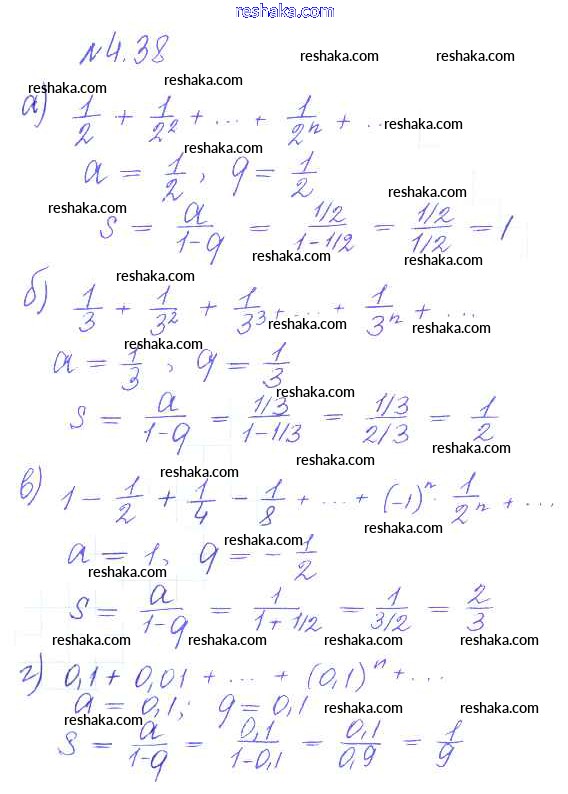 reshaka.com
N4.38
reshaka.com reshaka.com
reshaka.com reshaka.com
а) 1/2 + 1/2² + ... + 1/2ⁿ + ...
reshaka.com
reshaka.com
a = 1/2, q = 1/2
reshaka.com
reshaka.com
S = a/(1-q) = (1/2)/(1-1/2) = (1/2)/(1/2) = 1
reshaka.com reshaka.com
reshaka.com
б) 1/3 + 1/3² + 1/3³ + ... + 1/3ⁿ + ...
reshaka.com reshaka.com
reshaka.com
a = 1/3, q = 1/3
reshaka.com
S = a/(1-q) = (1/3)/(1-1/3) = (1/3)/(2/3) = 1/2
reshaka.com
reshaka.com
в) 1 - 1/2 + 1/4 - 1/8 + ... + (-1)ⁿ · 1/2ⁿ + ...
reshaka.com
reshaka.com
a = 1, q = -1/2
reshaka.com reshaka.com
S = a/(1-q) = 1/(1+1/2) = 1/(3/2) = 2/3
reshaka.com reshaka.com reshaka.com reshaka.com
г) 0,1 + 0,01 + ... + (0,1)ⁿ + ...
a = 0,1; q = 0,1
reshaka.com reshaka.com
reshaka.com
S = a/(1-q) = 0,1/(1-0,1) = 0,1/0,9 = 1/9